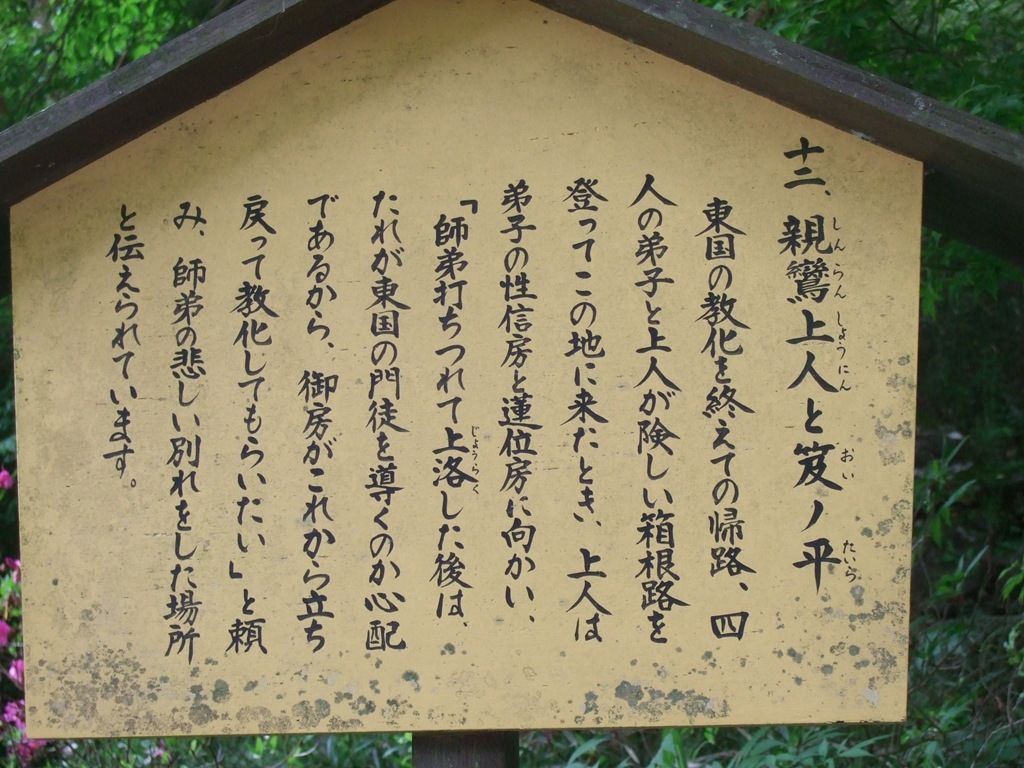 十二、親鸞上人と笈ノ平
しんらんしょうにん おい たいら
東国の教化を終えての帰路、四
人の弟子と上人が険しい箱根路を
登ってこの地に来たとき、上人は
弟子の性信房と蓮位房に向かい、
「師弟打ちつれて上洛した後は、
じょうらく
たれが東国の門徒を導くのか心配
であるから、御房がこれから立ち
戻って教化してもらいたい」と頼
み、師弟の悲しい別れをした場所
と伝えられています。